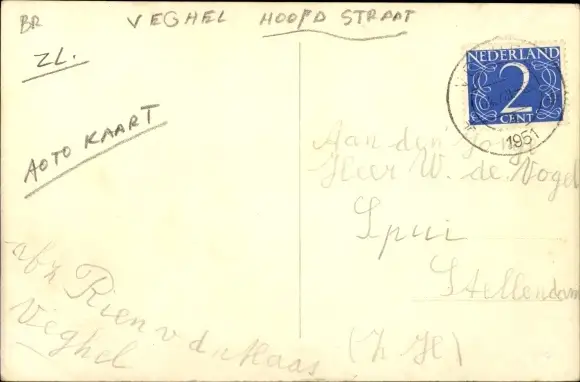 BR
VEGHEL HOOFD STRAAT
ZL.
AOTO KAART
NEDERLAND
2
CENT
1951
Aan den Jonge
Heer W. de Vogel
Spui
Stellendam
(Z H)
afz Rien v d Maas
Veghel